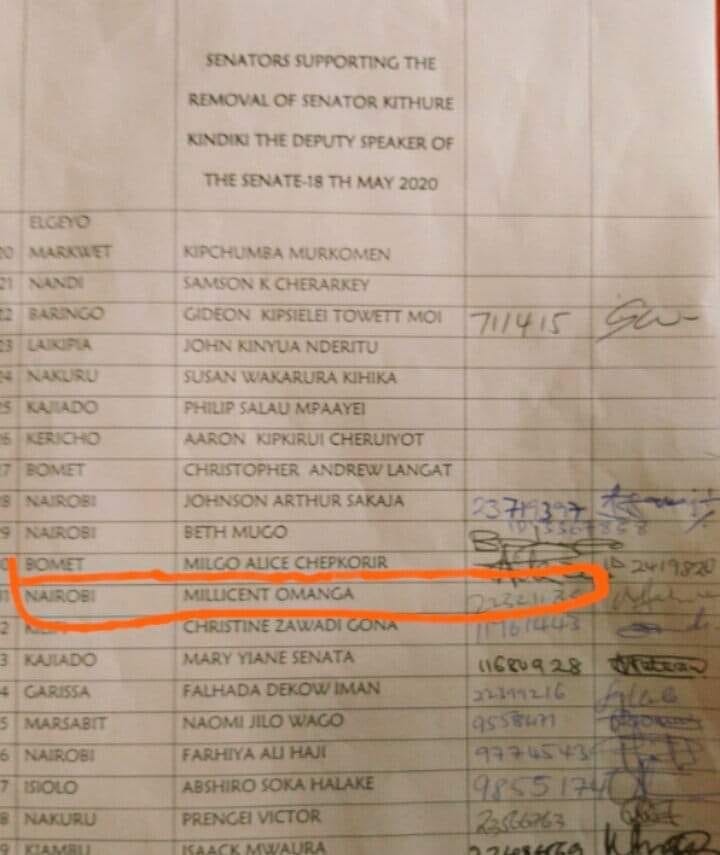 SENATORS SUPPORTING THE
REMOVAL OF SENATOR KITHURE
KINDIKI THE DEPUTY SPEAKER OF
THE SENATE-18 TH MAY 2020
ELGEYO
20 MARKWET KIPCHUMBA MURKOMEN
21 NANDI SAMSON K CHERARKEY
22 BARINGO GIDEON KIPSIELEI TOWETT MOI 711415
23 LAIKIPIA JOHN KINYUA NDERITU
24 NAKURU SUSAN WAKARURA KIHIKA
25 KAJIADO PHILIP SALAU MPAAYEI
26 KERICHO AARON KIPKIRUI CHERUIYOT
27 BOMET CHRISTOPHER ANDREW LANGAT
28 NAIROBI JOHNSON ARTHUR SAKAJA 23719397
29 NAIROBI BETH MUGO
BOMET MILGO ALICE CHEPKORIR ID 2419820
NAIROBI MILLICENT OMANGA
2 CHRISTINE ZAWADI GONA 11961443
3 KAJIADO MARY YIANE SENATA 11680928
4 GARISSA FALHADA DEKOW IMAN 22399216
5 MARSABIT NAOMI JILO WAGO
6 NAIROBI FARHIYA ALI HAJI 9774543
7 ISIOLO ABSHIRO SOKA HALAKE 9855174
8 NAKURU PRENGEI VICTOR 23566763
9 KIAMBU ISAACK MWAURA